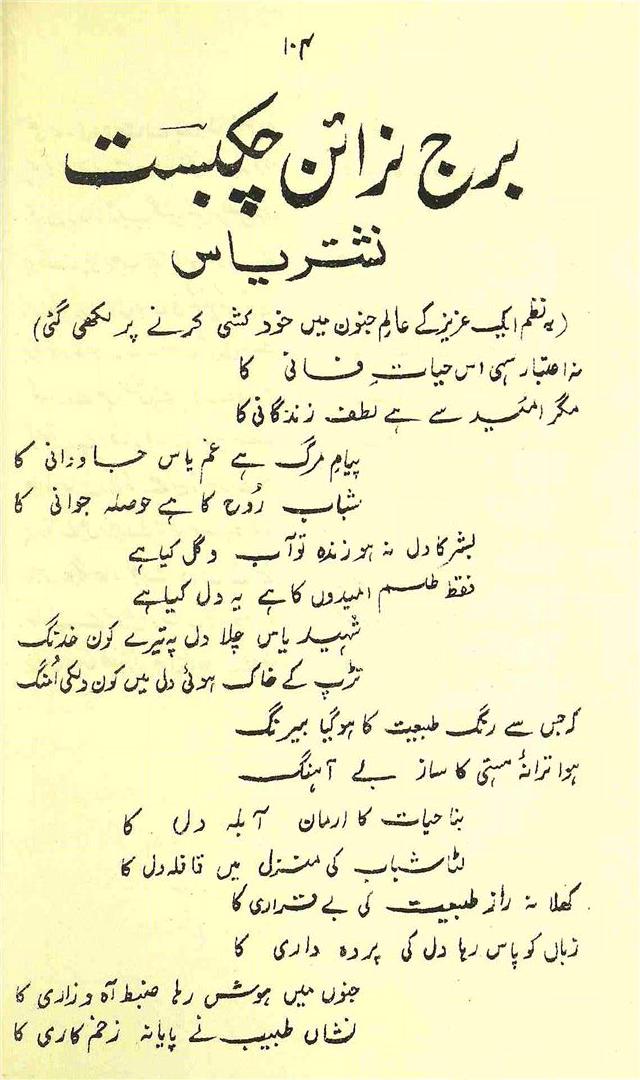 ۱۰۴
برج نرائن چکبست
نشتر یاس
(یہ نظم ایک عزیز کے عالمِ جنون میں خودکشی کرنے پر لکھی گئی)
نہ اعتبار سہی اس حیاتِ فانی کا
مگر امید سے ہے لطف زندگانی کا
پیامِ مرگ ہے غم یاس جاودانی کا
شباب رُوح کا ہے حوصلہ جوانی کا
بشر کا دل نہ ہو زندہ تو آب و گل کیا ہے
فقط طلسم امیدوں کا ہے یہ دل کیا ہے
شہید یاس چلا دل پہ تیرے کون خدنگ
تڑپ کے خاک ہوئی دل میں کون دل کی اُمنگ
کہ جس سے رنگ طبیعت کا ہو گیا بیرنگ
ہوا ترانۂ مستی کا ساز بے آہنگ
بنا حیات کا ارمان آبلہ دل کا
لٹا شباب کی منزل میں قافلہ دل کا
کھلا نہ راز طبیعت کی بے قراری کا
زباں کو پاس رہا دل کی پردہ داری کا
جنوں میں ہوش رہا ضبط آہ و زاری کا
نشاں طبیب نے پایا نہ زخم کاری کا